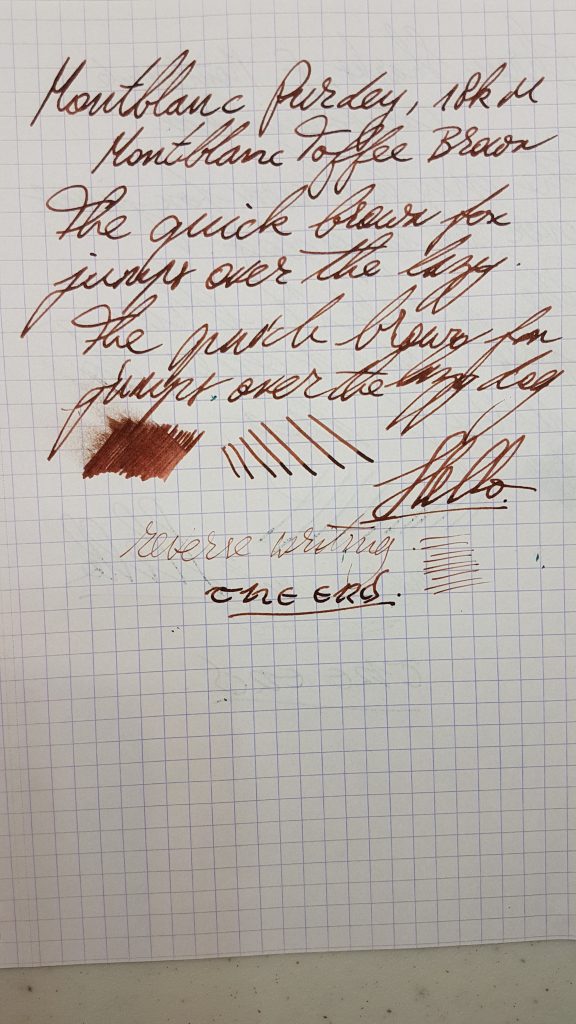 Montblanc Purdey, 18k M
Montblanc Toffee Brown
The quick brown fox
jumps over the lazy.
The quick brown fox
jumps over the lazy dog
Hello.
reverse writing
THE END.